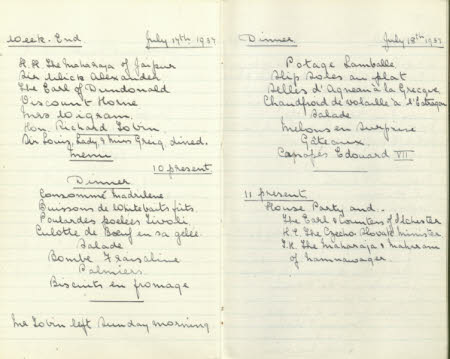 Week-End July 17th 1937
H.H. The Maharaja of Jaipur
Sir Ulick Alexander
The Earl of Dundonald
Viscount Horne
Mrs Wigram
Hon. Richard Tobin
Sir Louis, Lady, & Miss Greig dined.
Menu
10 present
Dinner
Consommé Madrilene
Buissons de Whitebaits frits
Poulardes poelées Tivoli
Culotte de Bœuf en sa gelée
Salade
Bombe Fraisaline
Palmiers
Biscuits en fromage
Mr Tobin left Sunday morning
Dinner July 18th 1937
Potage Lamballe
Slip Soles au plat
Selles d'Agneau à la Grecque
Chaudfroid de volaille à l'Estragon
Salade
Melons en Surprise
Gâteaux
Canapés Edouard VII
11 present
House Party and
The Earl & Countess of Ilchester
H.E. The Czecho Slovak Minister
T.H. The Maharaja & Maharani
of